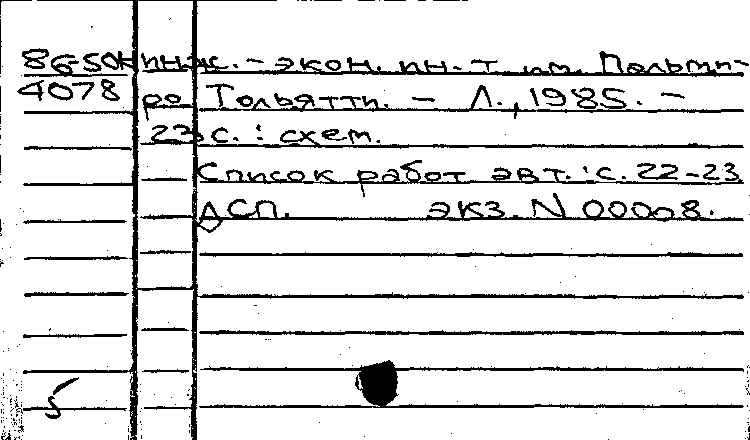 86-50к инж.-экон. ин-т им. Пальми-
4078 ро Тольятти. - Л., 1985. -
23 с. : схем.
Список работ авт.: с. 22-23
ДСП. экз. N 00008.
5